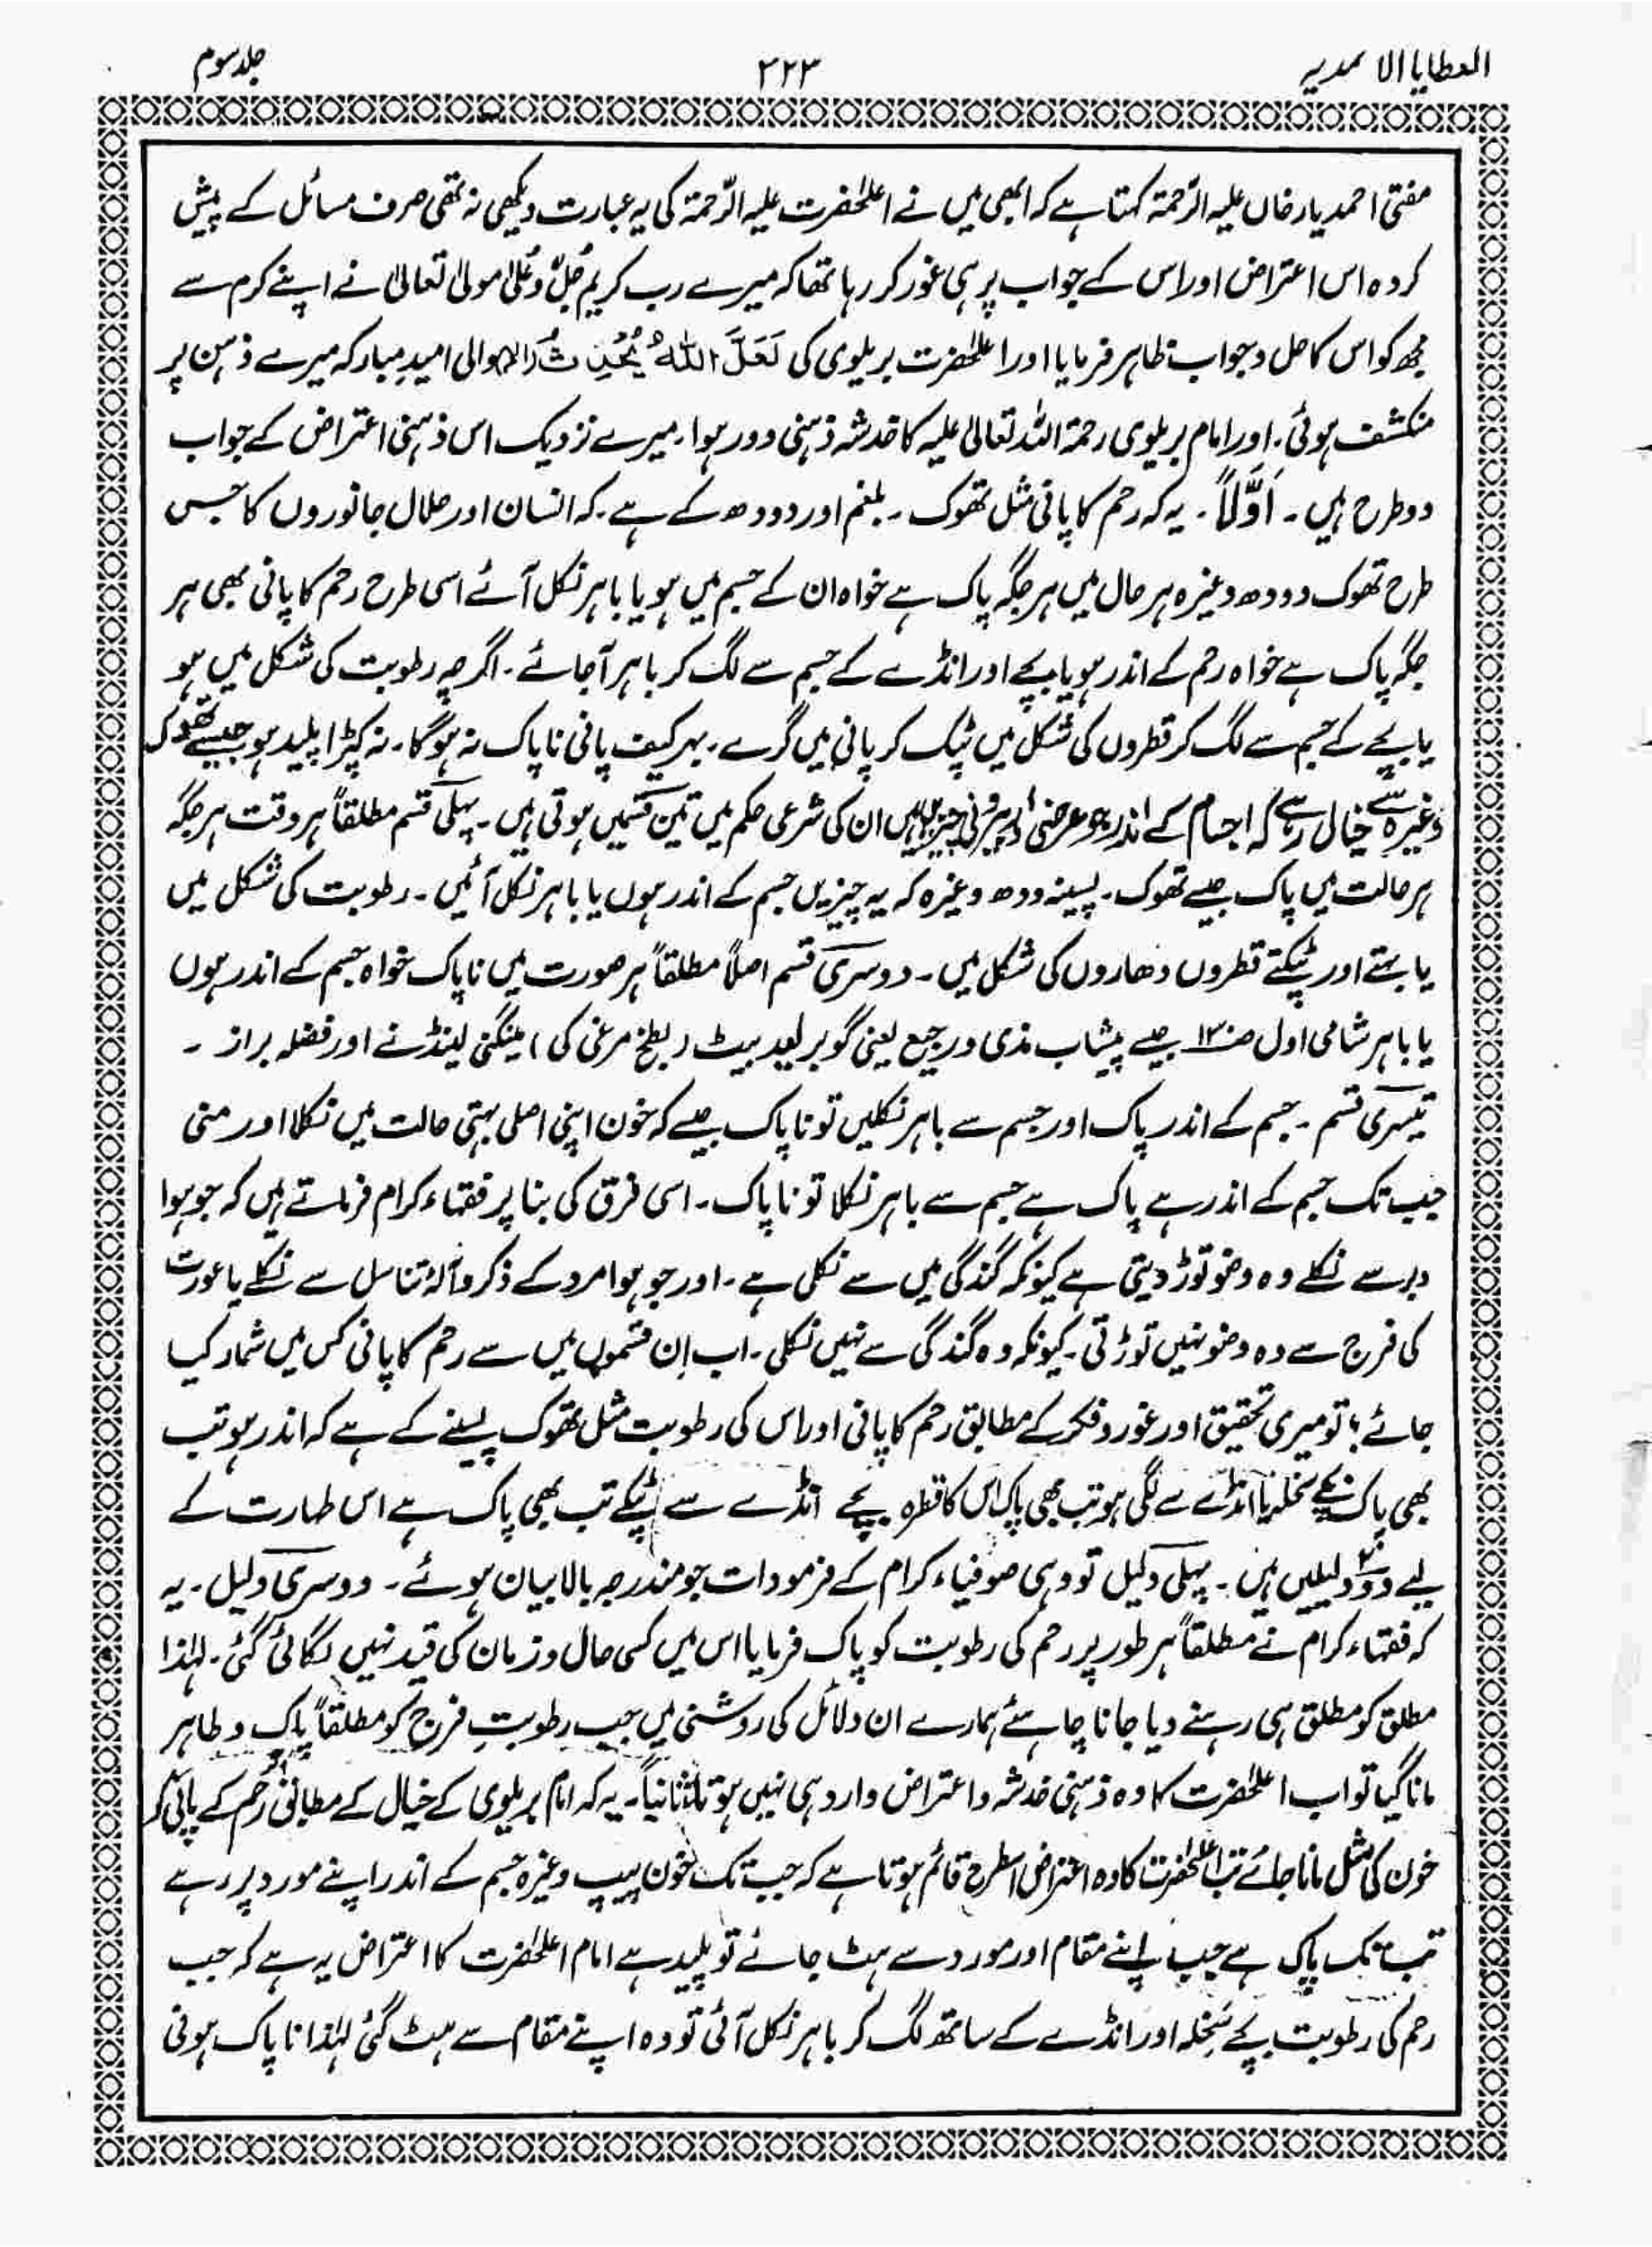 العطایا الاحمدیہ ۲۲۳ جلد سوم
مفتی احمد یار خاں علیہ الرّحمۃ کہتا ہے کہ ابھی میں نے اعلٰحضرت علیہ الرّحمۃ کی یہ عبارت دیکھی نہ تھی صرف مسائل کے پیش
کردہ اس اعتراض اور اس کے جواب پر ہی غور کر رہا تھا کہ میرے رب کریم جَلّ وَعُلیٰ مولیٰ تعالیٰ نے اپنے کرم سے
مجھ کو اس کا حل و جواب ظاہر فرمایا اور اعلٰحضرت بریلوی کی لَعَلَّ اللّٰهُ یُحْدِثُ الخ والی امیدِ مبارکہ میرے ذہن پر
منکشف ہوئی۔ اور امام بریلوی رحمۃ اللہ تعالیٰ علیہ کا خدشہ ذہنی دور ہوا۔ میرے نزدیک اس ذہنی اعتراض کے جواب
دو طرح ہیں۔ اَوَّلاً۔ یہ کہ رحم کا پانی مثل تھوک۔ بلغم اور دودھ کے ہے۔ کہ انسان اور حلال جانوروں کا جس
طرح تھوک دودھ وغیرہ ہر حال میں ہر جگہ پاک ہے خواہ ان کے جسم میں ہو یا باہر نکل آئے اسی طرح رحم کا پانی بھی ہر
جگہ پاک ہے خواہ رحم کے اندر ہو یا بچے اور انڈے کے جسم سے لگ کر باہر آجائے۔ اگرچہ رطوبت کی شکل میں ہو
یا بچے کے جسم سے لگ کر قطروں کی شکل میں ٹپک کر پانی میں گرے۔ بہر کیف پانی ناپاک نہ ہوگا۔ نہ کپڑا پلید ہو جیسے تھوک
وغیرہ سے خیال رہے کہ اجسام کے اندر جو عرضی اور بیرونی چیزیں ہیں ان کی شرعی حکم میں تین قسمیں ہوتی ہیں۔ پہلی قسم مطلقاً ہر وقت ہر جگہ
ہر حالت میں پاک جیسے تھوک۔ پسینہ ودھ وغیرہ کہ یہ چیزیں جسم کے اندر ہوں یا باہر نکل آئیں۔ رطوبت کی شکل میں
یا بہتے اور ٹپکتے قطروں دھاروں کی شکل میں۔ دوسری قسم اصلاً مطلقاً ہر صورت میں ناپاک خواہ جسم کے اندر ہوں
یا باہر شامی اول صـ۱۲ جیسے پیشاب مذی و رجیع یعنی گوبر لید بیٹ (بطخ مرغی کی) مینگنی لینڈنے اور فضلہ براز ۔
تیسری قسم۔ جسم کے اندر پاک اور جسم سے باہر نکلیں تو ناپاک جیسے کہ خون اپنی اصلی بہتی حالت میں نکلا اور منی
جب تک جسم کے اندر ہے پاک ہے جسم سے باہر نکلا تو ناپاک۔ اسی فرق کی بنا پر فقہاء کرام فرماتے ہیں کہ جو ہوا
دبر سے نکلے وہ وضو توڑ دیتی ہے کیونکہ گندگی میں سے نکلی ہے۔ اور جو ہوا مرد کے ذکر وآلۂ تناسل سے نکلے یا عورت
کی فرج سے وہ وضو نہیں توڑتی۔ کیونکہ وہ گندگی سے نہیں نکلی۔ اب اِن قسموں میں سے رحم کا پانی کس میں شمار کیا
جائے؟ تو میری تحقیق اور غور و فکر کے مطابق رحم کا پانی اور اس کی رطوبت مثل تھوک پسینے کے ہے کہ اندر ہو تب
بھی پاک بچے سخلہ یا انڈے سے لگی ہو تب بھی پاک اس کا قطرہ بچے انڈے سے ٹپکے تب بھی پاک ہے اس طہارت کے
لیے دو۲ دلیلیں ہیں۔ پہلی دلیل تو وہی صوفیاء کرام کے فرمودات جو مندرجہ بالا بیان ہوئے۔ دوسری دلیل۔ یہ
کہ فقہاء کرام نے مطلقاً ہر طور پر رحم کی رطوبت کو پاک فرمایا اس میں کسی حال و زمان کی قید نہیں لگائی گئی۔ لہٰذا
مطلق کو مطلق ہی رہنے دیا جانا چاہئے ہمارے ان دلائل کی روشنی میں جب رطوبتِ فرج کو مطلقاً پاک و طاہر
مانا گیا تو اب اعلٰحضرت کا وہ ذہنی خدشہ و اعتراض وارد ہی نہیں ہوتا ثانیاً۔ یہ کہ امام بریلوی کے خیال کے مطابق رحم کے پانی کو
خون کی مثل مانا جائے تب اعلٰحضرت کا وہ اعتراض اسطرح قائم ہوتا ہے کہ جب تک خون پیپ وغیرہ جسم کے اندر اپنے مورد پر رہے
تب تک پاک ہے جب اپنے مقام اور مورد سے ہٹ جائے تو پلید ہے امام اعلٰحضرت کا اعتراض یہ ہے کہ جب
رحم کی رطوبت بچے سَخلہ اور انڈے کے ساتھ لگ کر باہر نکل آئی تو وہ اپنے مقام سے ہٹ گئی لہٰذا ناپاک ہونی